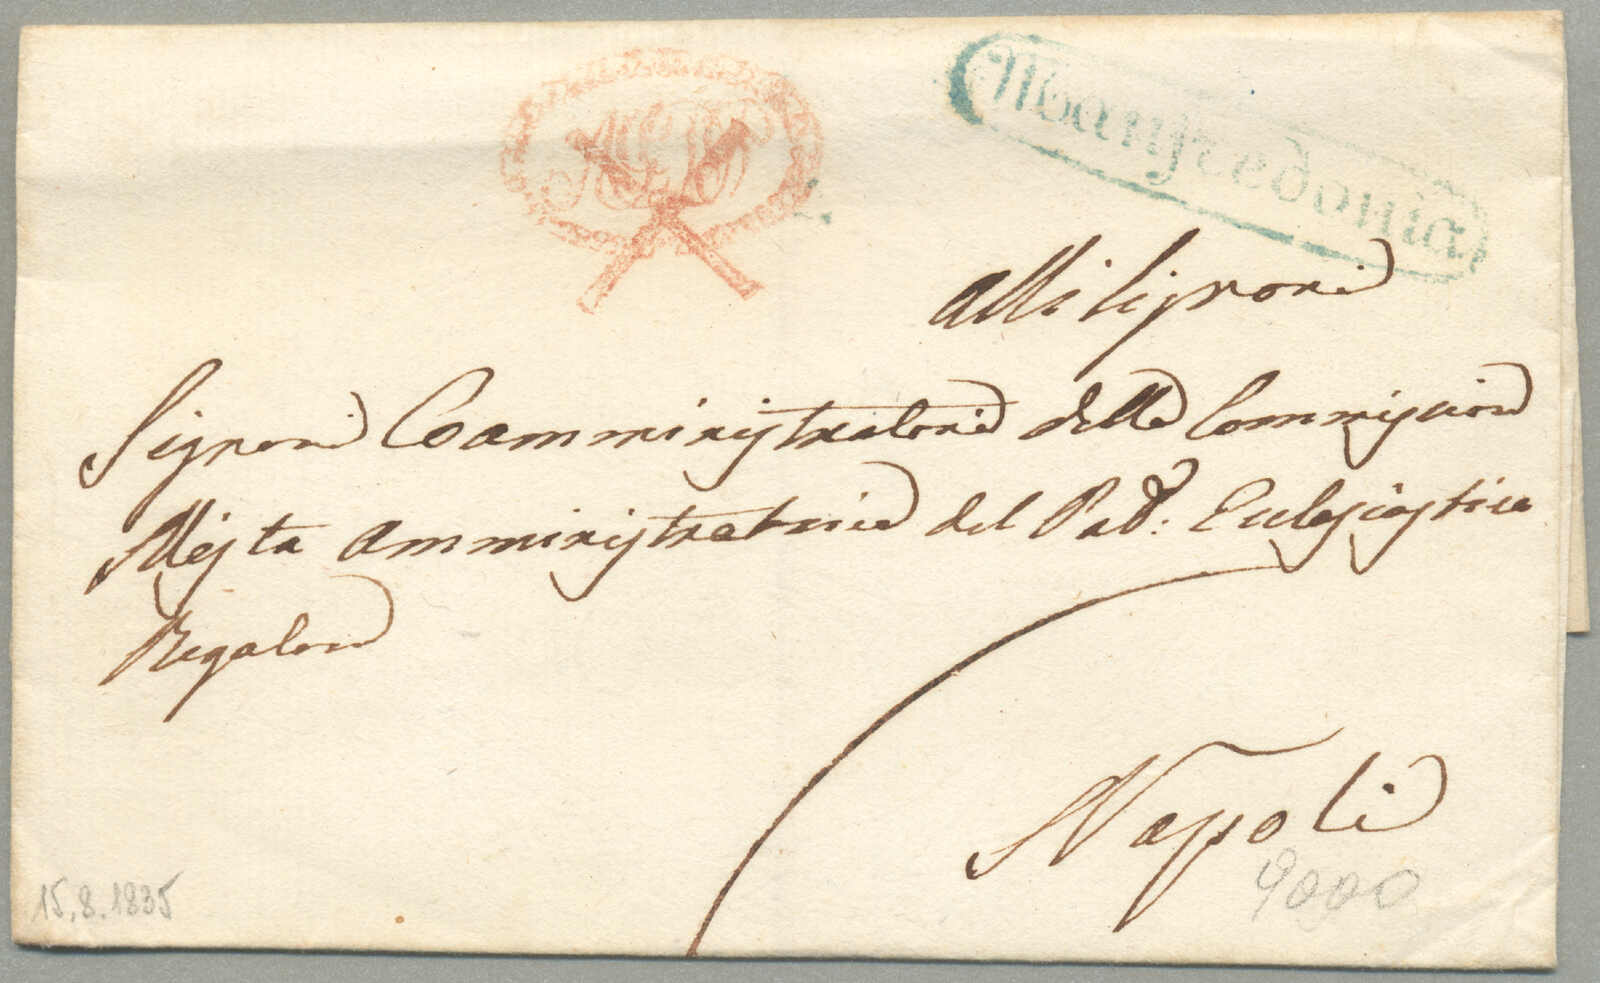 Manfredonia
Alli Signori
Signori Coamministratori della Commissione
Mista Amministratrice del Pad: Ecclesiastica
Regolare
Napoli
9000
15.8.1835